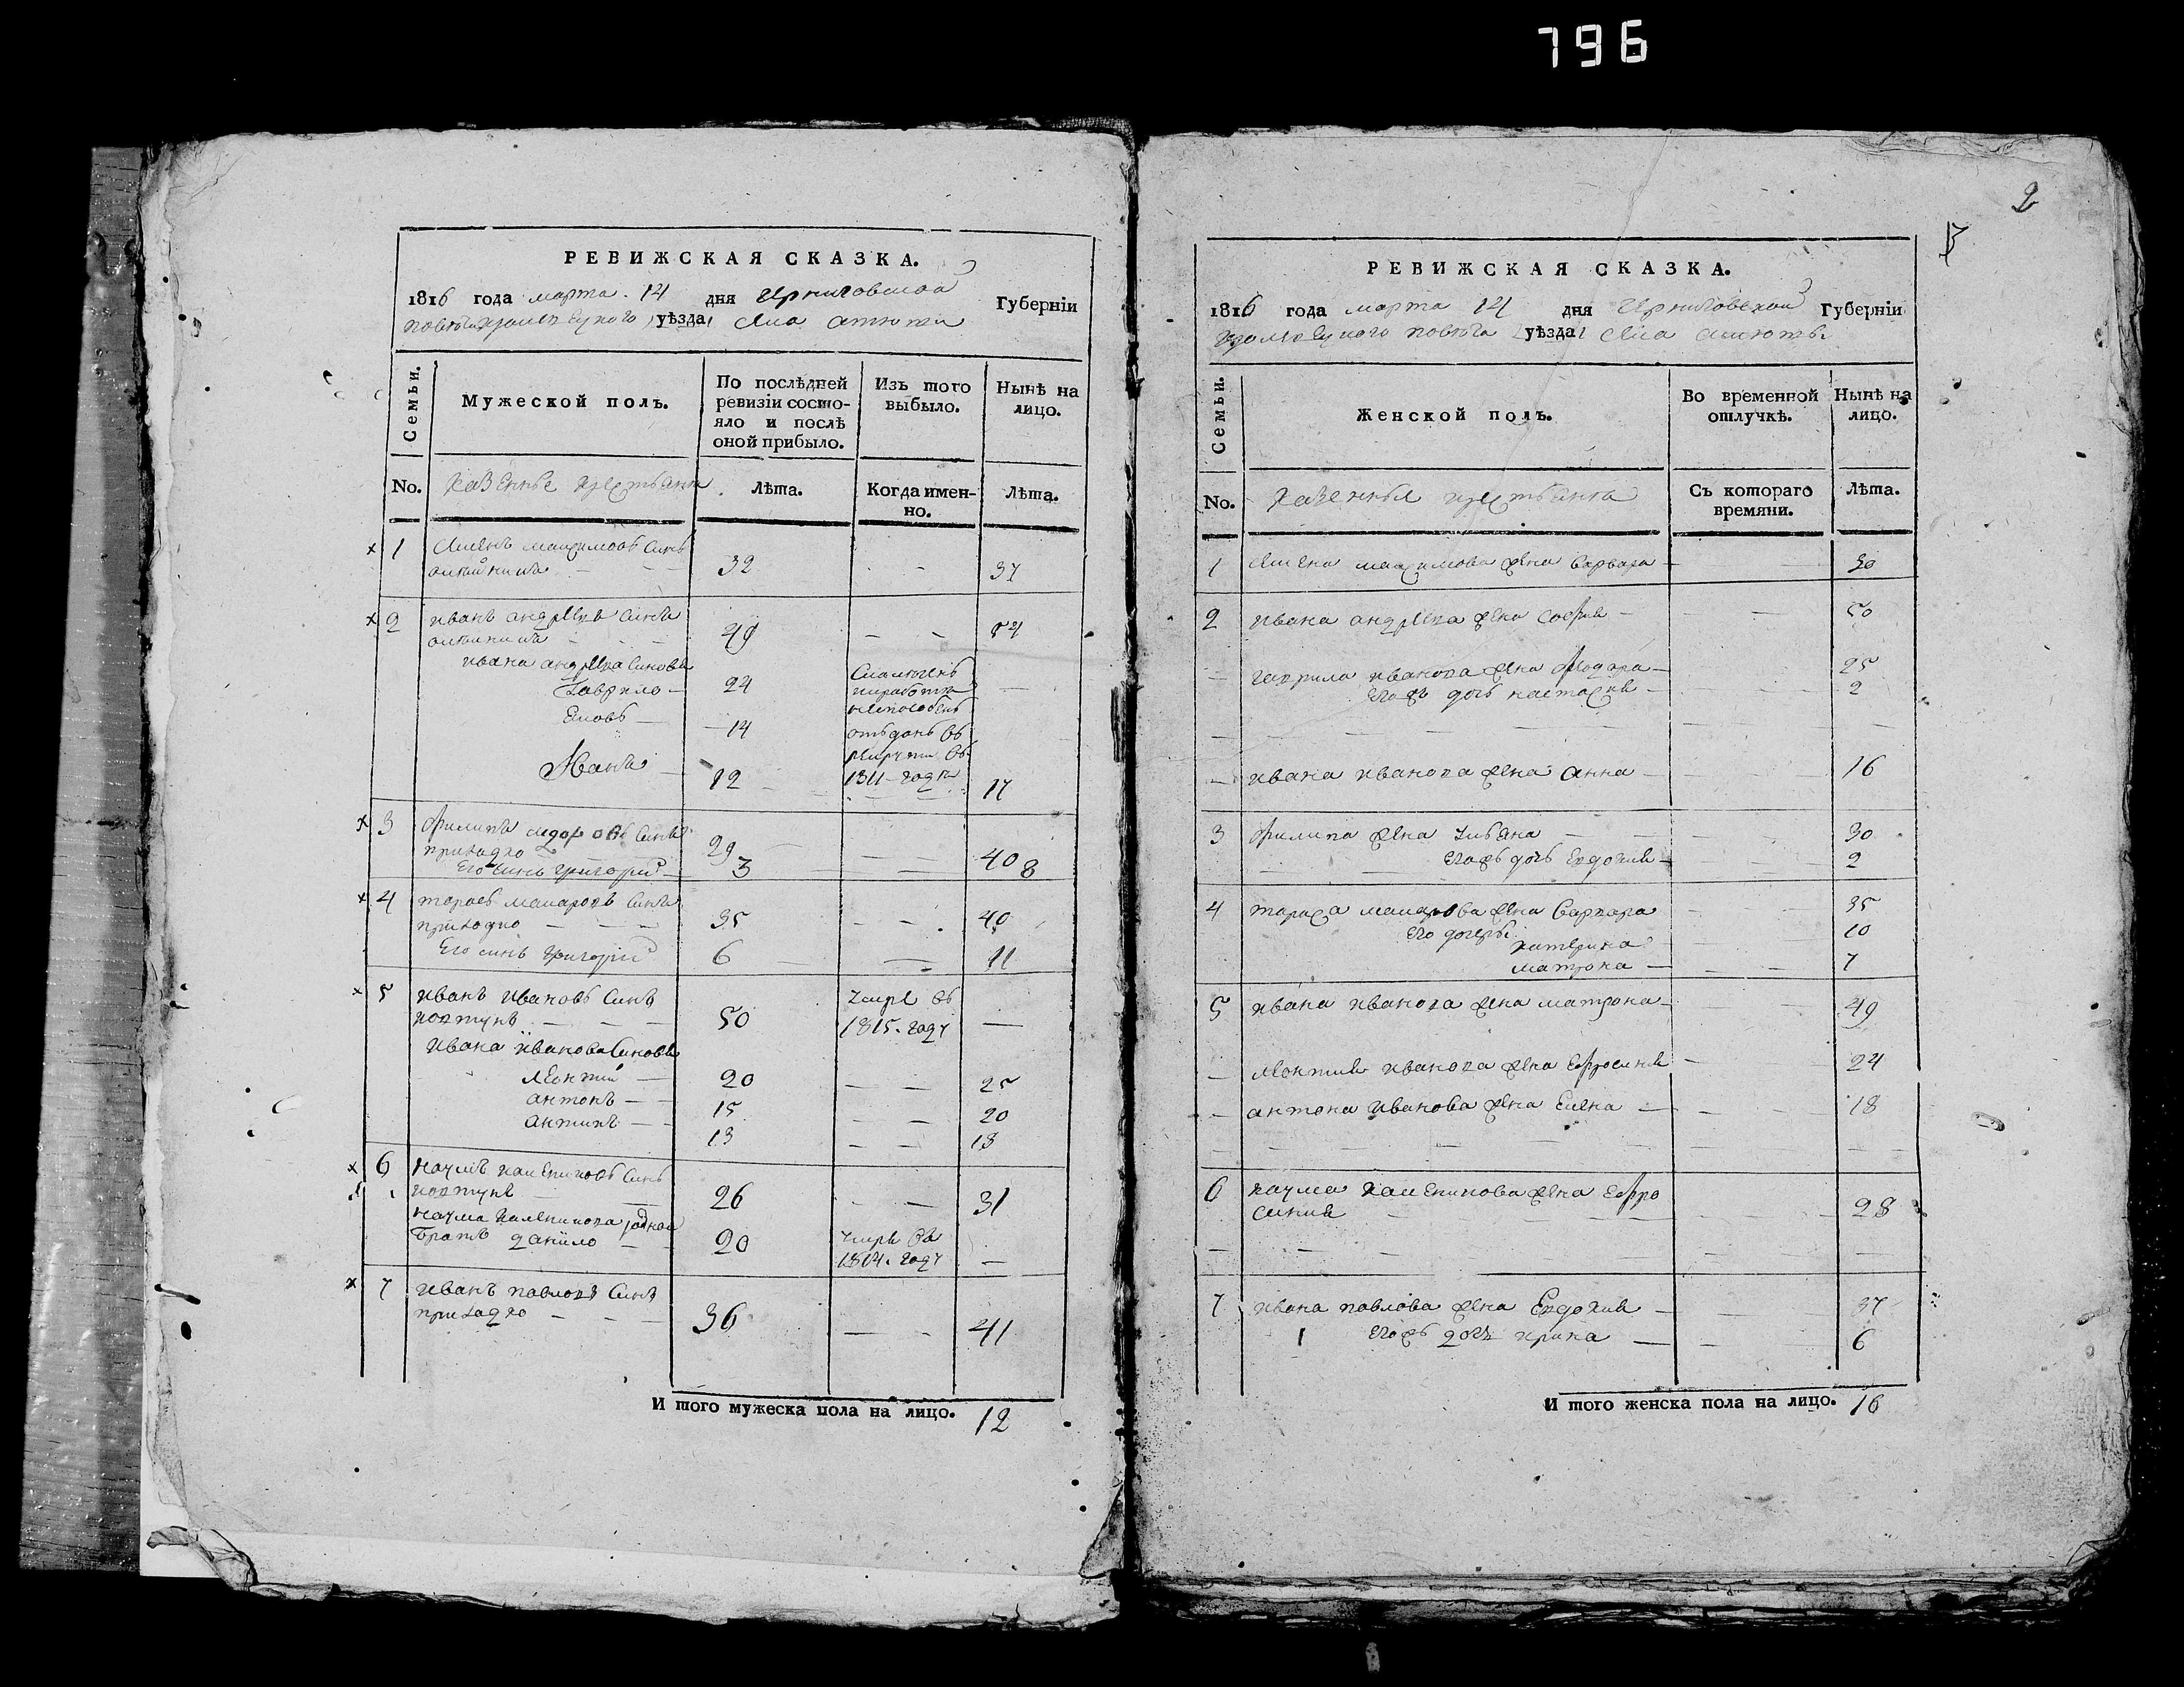 796
РЕВИЖСКАЯ СКАЗКА.
1816 года марта 14 дня Черниговской Губерніи
повета Кролевецкого уѣзда Села
Семьи.
Мужеской полъ.
По послѣдней ревизіи состояло и послѣ оной прибыло.
Изъ того выбыло.
Нынѣ на лицо.
No.
Казенные крестьяни
Лѣта.
Когда именно.
Лѣта.
1 Максимовъ синъ
32 37
2 Иванъ Андреевъ синъ
49 54
Ивана Андреева синовья
Гаврило 24
неспособенъ
14 отъданъ въ
рекруты въ
Иванъ 12 1811 году 17
3 Филипъ синъ
Приходко 29 40
Его синъ Григорій 3 8
4 Тарасъ Макаровъ синъ
Приходко 35 40
Его синъ Григорій 6 11
5 Иванъ Ивановъ синъ умре въ
Ковтунъ 50 1815. году
Ивана Иванова синовья
Леонтій 20 25
Антонъ 15 20
Антипъ 13 18
6 Наумъ синъ
Ковтунъ 26 31
Наума родной
братъ Данило 20 умре въ
1814. году
7 Иванъ Павловъ синъ
Приходко 36 41
И того мужеска пола на лицо. 12
2
РЕВИЖСКАЯ СКАЗКА.
1816 года марта 14 дня Черниговской Губерніи
Кролевецкого повета уѣзда Села
Семьи.
Женской полъ.
Во временной отлучкѣ.
Нынѣ на лицо.
No.
Казенные крестьянки
Съ котораго времяни.
Лѣта.
1 Максимова жена Варвара 30
2 Ивана Андреева жена София 50
Гаврила Иванова жена Феодора 25
Егожъ дочь Настасия 2
Ивана Иванова жена Анна 16
3 Филипа жена Улияна 30
Егожъ дочь Евдокия 2
4 Тараса Макарова жена Варвара 35
Его дочери:
Катерина 10
Матрона 7
5 Ивана Иванова жена Матрона 49
Леонтия Иванова жена Ефросиния 24
Антона Иванова жена Елена 18
6 Наума жена Ефро
синия 28
7 Ивана Павлова жена Евдокия 37
Егожъ дочь Ирина 6
И того женска пола на лицо. 16